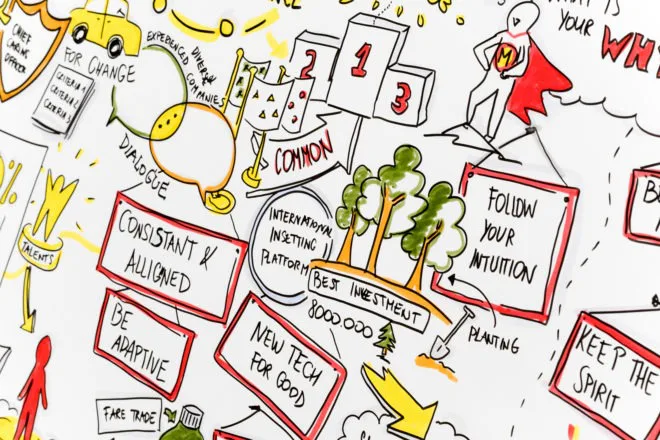 CHIEF
CARING
OFFICER
FOR CHANGE
CRITERIA 1
CRITERIA 2
CRITERIA 3
EXPERIENCED
DIVERSE
COMPANIES
DIALOGUE
2
1
3
COMMON
YOUR WH
M
%
TALENTS
CONSISTANT &
ALLIGNED
BE
ADAPTIVE
INTERNATIONAL
INSETTING
PLATFORM
BEST INVESTMENT
8000.000
FOLLOW
YOUR
INTUITION
PLANTING
NEW TECH
FOR GOOD
KEEP THE
SPIRIT
FARE TRADE